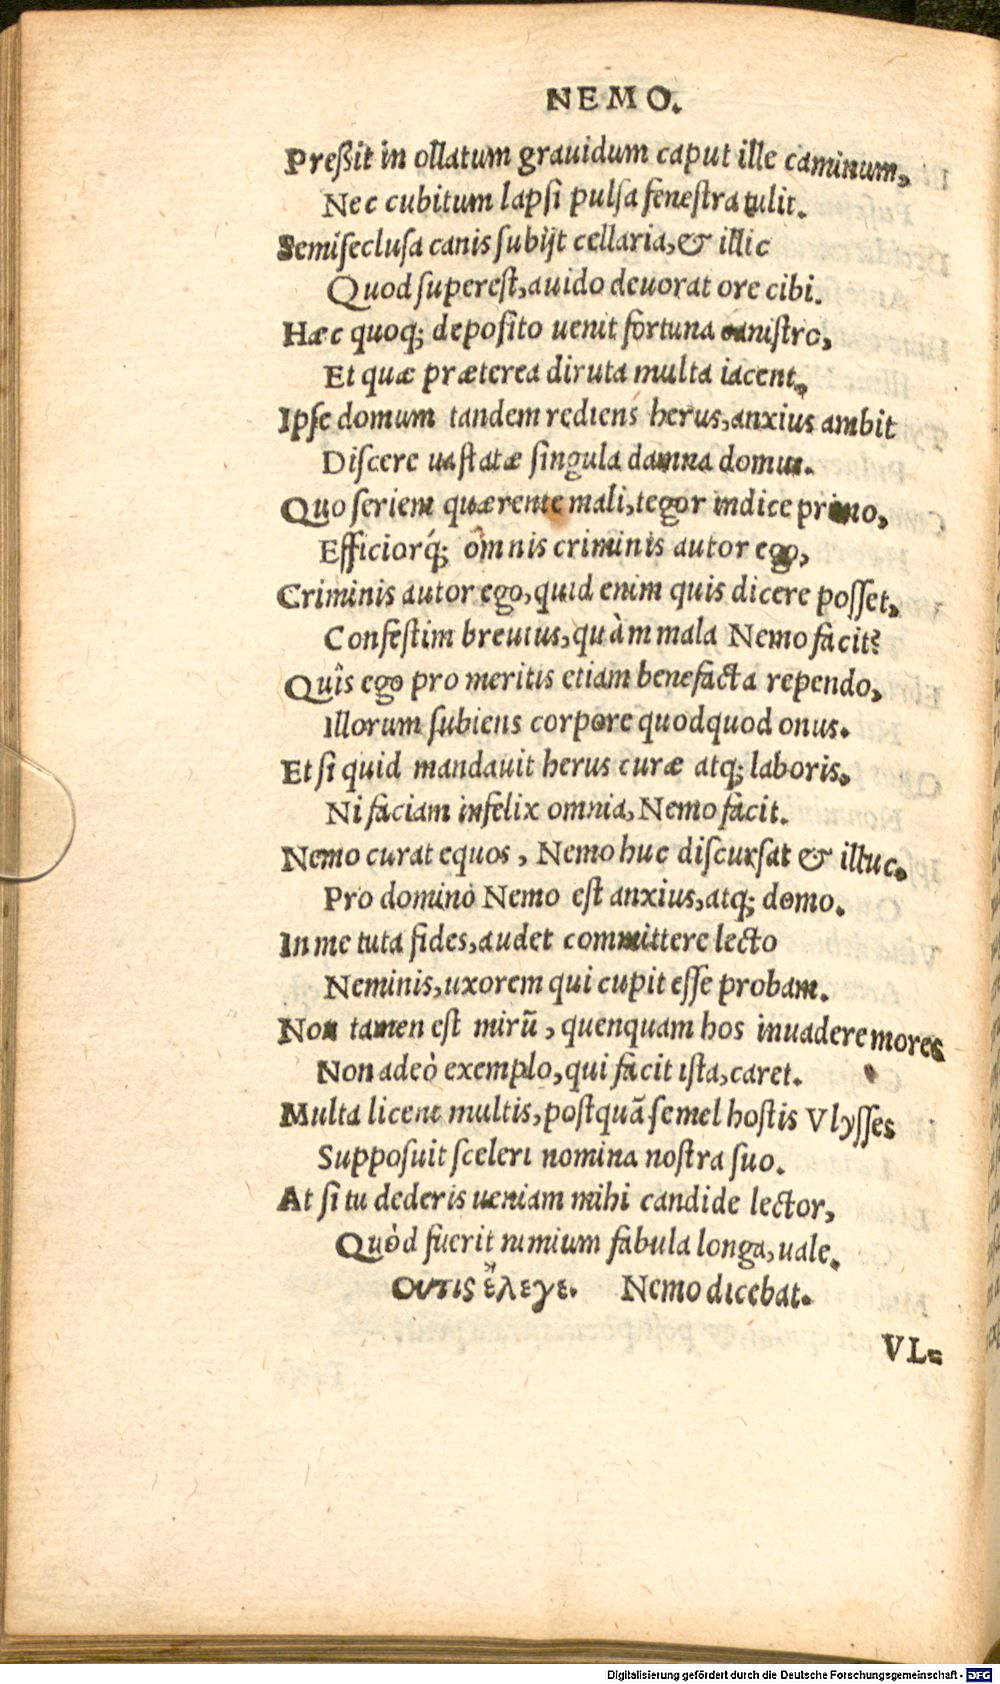 NEMO.
Preßit in ollatum grauidum caput ille caminum,
Nec cubitum lapsi pulsa fenestra tulit.
Semiseclusa canis subijt cellaria, & illic
Quod superest, auido deuorat ore cibi.
Hæc quoq; deposito uenit fortuna canistro,
Et quæ præterea diruta multa iacent.
Ipse domum tandem rediens herus, anxius ambit
Discere uastatæ singula damna domus.
Quo seriem quærente mali, tegor indice primo,
Efficiorq́; om̂nis criminis autor ego,
Criminis autor ego, quid enim quis dicere posset,
Confestim breuius, quàm mala Nemo facit?
Quîs ego pro meritis etiam benefacta rependo,
Illorum subiens corpore quodquod onus.
Et si quid mandauit herus curæ atq; laboris,
Ni faciam infelix omnia, Nemo facit.
Nemo curat equos, Nemo huc discursat & illuc.
Pro domino Nemo est anxius, atq; domo.
In me tuta fides, audet committere lecto
Neminis, uxorem qui cupit esse probam.
Non tamen est mirũ, quenquam hos inuadere mores
Non adeò exemplo, qui facit ista, caret.
Multa licent multis, postquã semel hostis Vlysses
Supposuit sceleri nomina nostra suo.
At si tu dederis ueniam mihi candide lector,
Quòd fuerit nimium fabula longa, uale.
Ουτις ἔλεγε. Nemo dicebat.
VL=
Digitalisierung gefördert durch die Deutsche Forschungsgemeinschaft - DFG